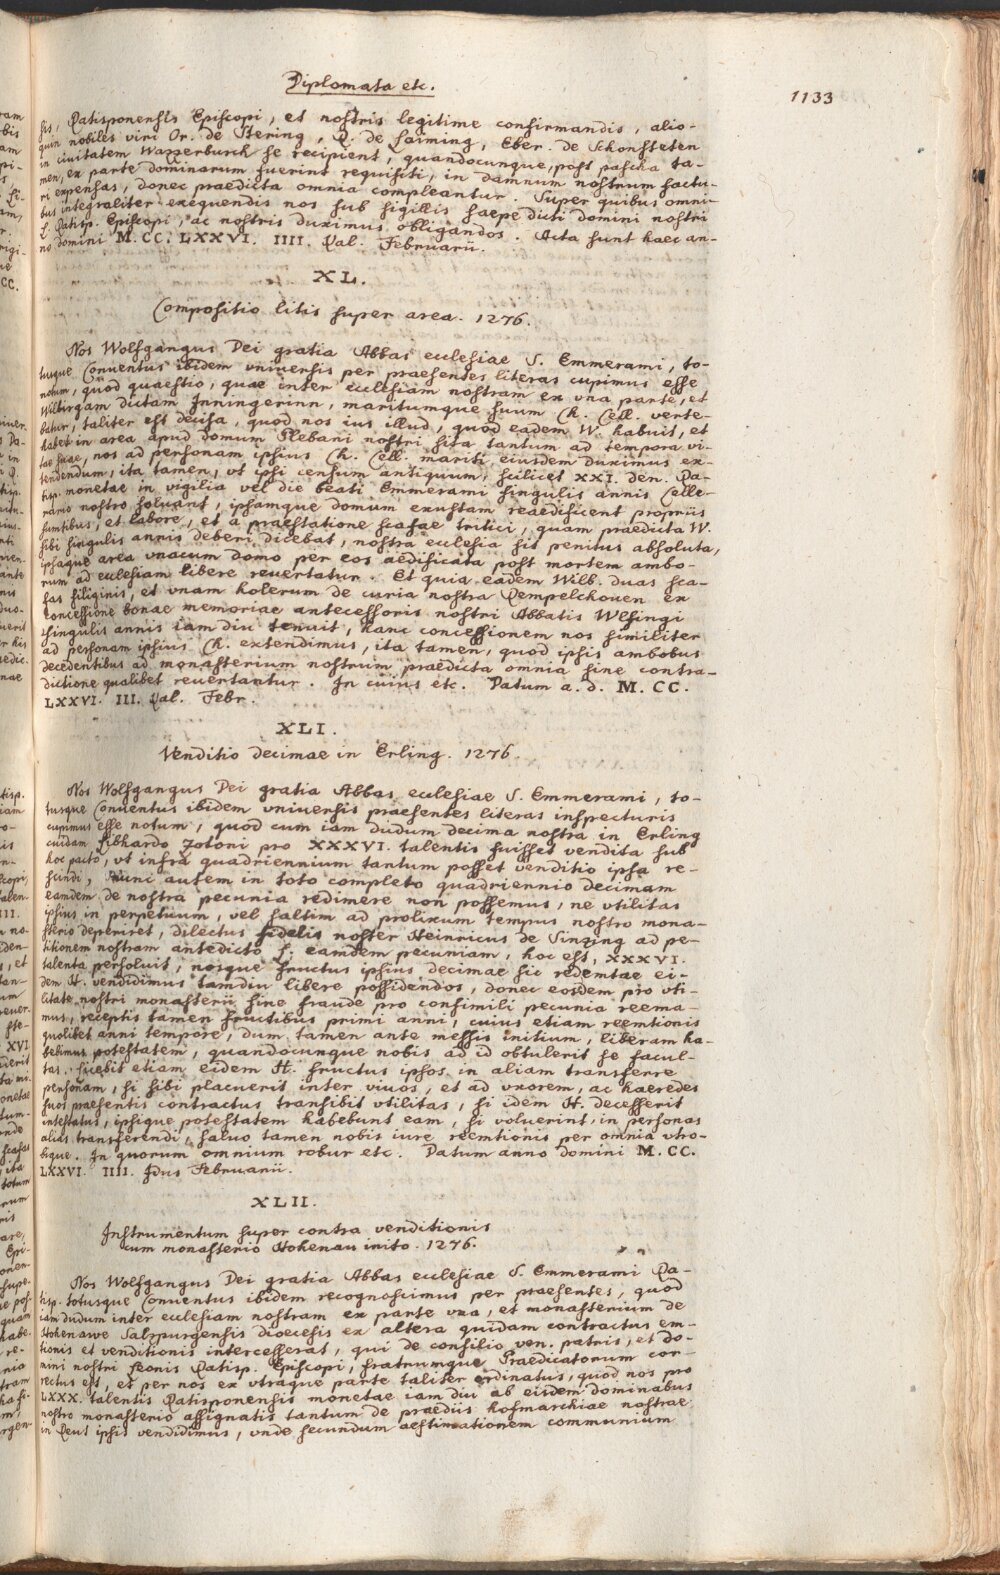 Diplomata etc.
1133
sis, Ratisponensis Episcopi, et nostris legitime confirmandis, alio-
quin nobiles viri Or. de Stering, Q. de Laiming, Eber. de Schonsteten
in civitatem Wazzerburch se recipient, quandocunque, post pascha ta-
men, ex parte dominarum fuerint requisiti, in damnum nostrum factu-
ri expensas, donec praedicta omnia compleantur. Super quibus omni-
bus integraliter exequendis nos sub sigillis saepe dicti domini nostri
L. Ratisp. Episcopi, ac nostris duximus obligandos. Acta sunt haec an-
no domini M.CC. LXXVI. IIII. Kal. Februarii.
XL.
Compositio litis super area. 1276.
Nos Wolfgangus Dei gratia Abbas ecclesiae S. Emmerami, to-
tuque Conuentus ibidem vniuersis per praesentes literas cupimus esse
notum, quod quaestio, quae inter ecclesiam nostram ex vna parte, et
Wilbirgam dictam Inningerinn, maritumque suum Ch. Cell. verte-
batur, taliter est decisa, quod nos ius illud, quod eadem W. habuit, et
habet in area apud domum Plebani nostri sita tantum ad tempora vi-
tae suae, nos ad personam ipsius Ch. Cell. mariti eiusdem duximus ex-
tendendum, ita tamen, vt ipsi censum antiquum, scilicet XXI. den. Ra-
tisp. monetae in vigilia vel die beati Emmerami singulis annis Celle-
rario nostro soluant, ipsamque domum exustam reaedificent propriis
sumtibus, et labore, et a praestatione scafae tritici, quam praedicta W.
sibi singulis annis deberi dicebat, nostra ecclesia sit penitus absoluta,
ipsaque area vnacum domo per eos aedificata post mortem ambo-
rum ad ecclesiam libere reuertatur. Et quia eadem Wilb. duas sca-
fas siliginis, et vnam holerum de curia nostra Rempelchouen ex
concessione bonae memoriae antecessoris nostri Abbatis Wlfingi
singulis annis iam diu tenuit, hanc concessionem nos similiter
ad personam ipsius Ch. extendimus, ita tamen, quod ipsis ambobus
decedentibus ad monasterium nostrum praedicta omnia sine contra-
dictione qualibet reuertantur. In cuius etc. Datum a. d. M. CC.
LXXVI. III. Kal. Febr.
XLI.
Venditio decimae in Erling. 1276.
Nos Wolfgangus Dei gratia Abbas ecclesiae S. Emmerami, to-
tusque Conuentus ibidem vniuersis praesentes literas inspecturis
cupimus esse notum, quod cum iam dudum decima nostra in Erling
cuidam Libhardo Zotoni pro XXXVI. talentis fuisset vendita sub
hoc pacto, vt infra quadriennium tantum posset venditio ipsa re-
scindi, nunc autem in toto completo quadriennio decimam
eamdem de nostra pecunia redimere non possemus, ne vtilitas
ipsius in perpetuum, vel saltim ad prolixum tempus nostro mona-
sterio deperiret, dilectus fidelis noster Heinricus de Sinzing ad pe-
titionem nostram antedicto L. eamdem pecuniam, hoc est, XXXVI.
talenta persoluit, nosque fructus ipsius decimae sic redemtae ei-
dem H. vendidimus tamdiu libere possidendos, donec eosdem pro vti-
litate nostri monasterii sine fraude pro consimili pecunia reema-
mus, receptis tamen fructibus primi anni, cuius etiam reemtionis
quolibet anni tempore, dum tamen ante messis initium, liberam ha-
bebimus potestatem, quandocunque nobis ad id obtulerit se facul-
tas. Licebit etiam eidem H. fructus ipsos in aliam transferre
personam, si sibi placuerit inter viuos, et ad vxorem, ac haeredes
suos praesentis contractus transibit vtilitas, si idem H. decesserit
intestatus, ipsique potestatem habebunt eam, si voluerint, in personas
alias transferendi, saluo tamen nobis iure reemtionis per omnia vtro-
bique. In quorum omnium robur etc. Datum anno domini M. CC.
LXXVI. IIII. Idus Februarii.
XLII.
Instrumentum super contra venditionis
cum monasterio Hohenau inito. 1276.
Nos Wolfgangus Dei gratia Abbas ecclesiae S. Emmerami Ra-
tisp. totusque Conuentus ibidem recognoscimus per praesentes, quod
iam dudum inter ecclesiam nostram ex parte vna, et monasterium de
Hohenawe Salzpurgensis dioecesis ex altera quidam contractus em-
tionis et venditionis intercesserat, qui de consilio ven. patris, et do-
mini nostri Leonis Ratisp. Episcopi, fratrumque Praedicatorum cor-
rectus est, et per nos ex vtraque parte taliter ordinatus, quod nos pro
LXXX. talentis Ratisponensis monetae iam diu ab eisdem dominabus
nostro monasterio assignatis tantum de praediis hofmarchiae nostrae
in Reut ipsis vendidimus, vnde secundum aestimationem communium